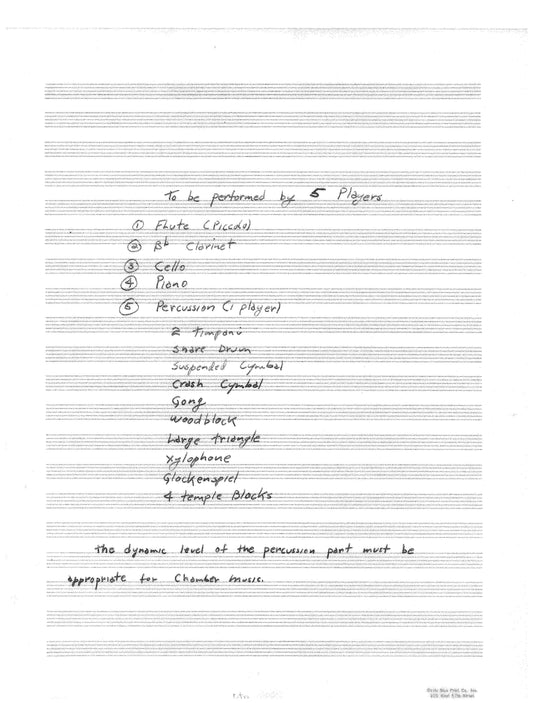 To be performed by 5 Players
① Flute (Piccolo)
② B♭ Clarinet
③ Cello
④ Piano
⑤ Percussion (1 player)
2 timpani
Snare Drum
Suspended Cymbal
Crash Cymbal
Gong
Woodblock
Large triangle
Xylophone
Glockenspiel
4 temple Blocks
the dynamic level of the percussion part must be
appropriate for Chamber music.
Circle Blue Print Co. Inc.
225 West 57th Street